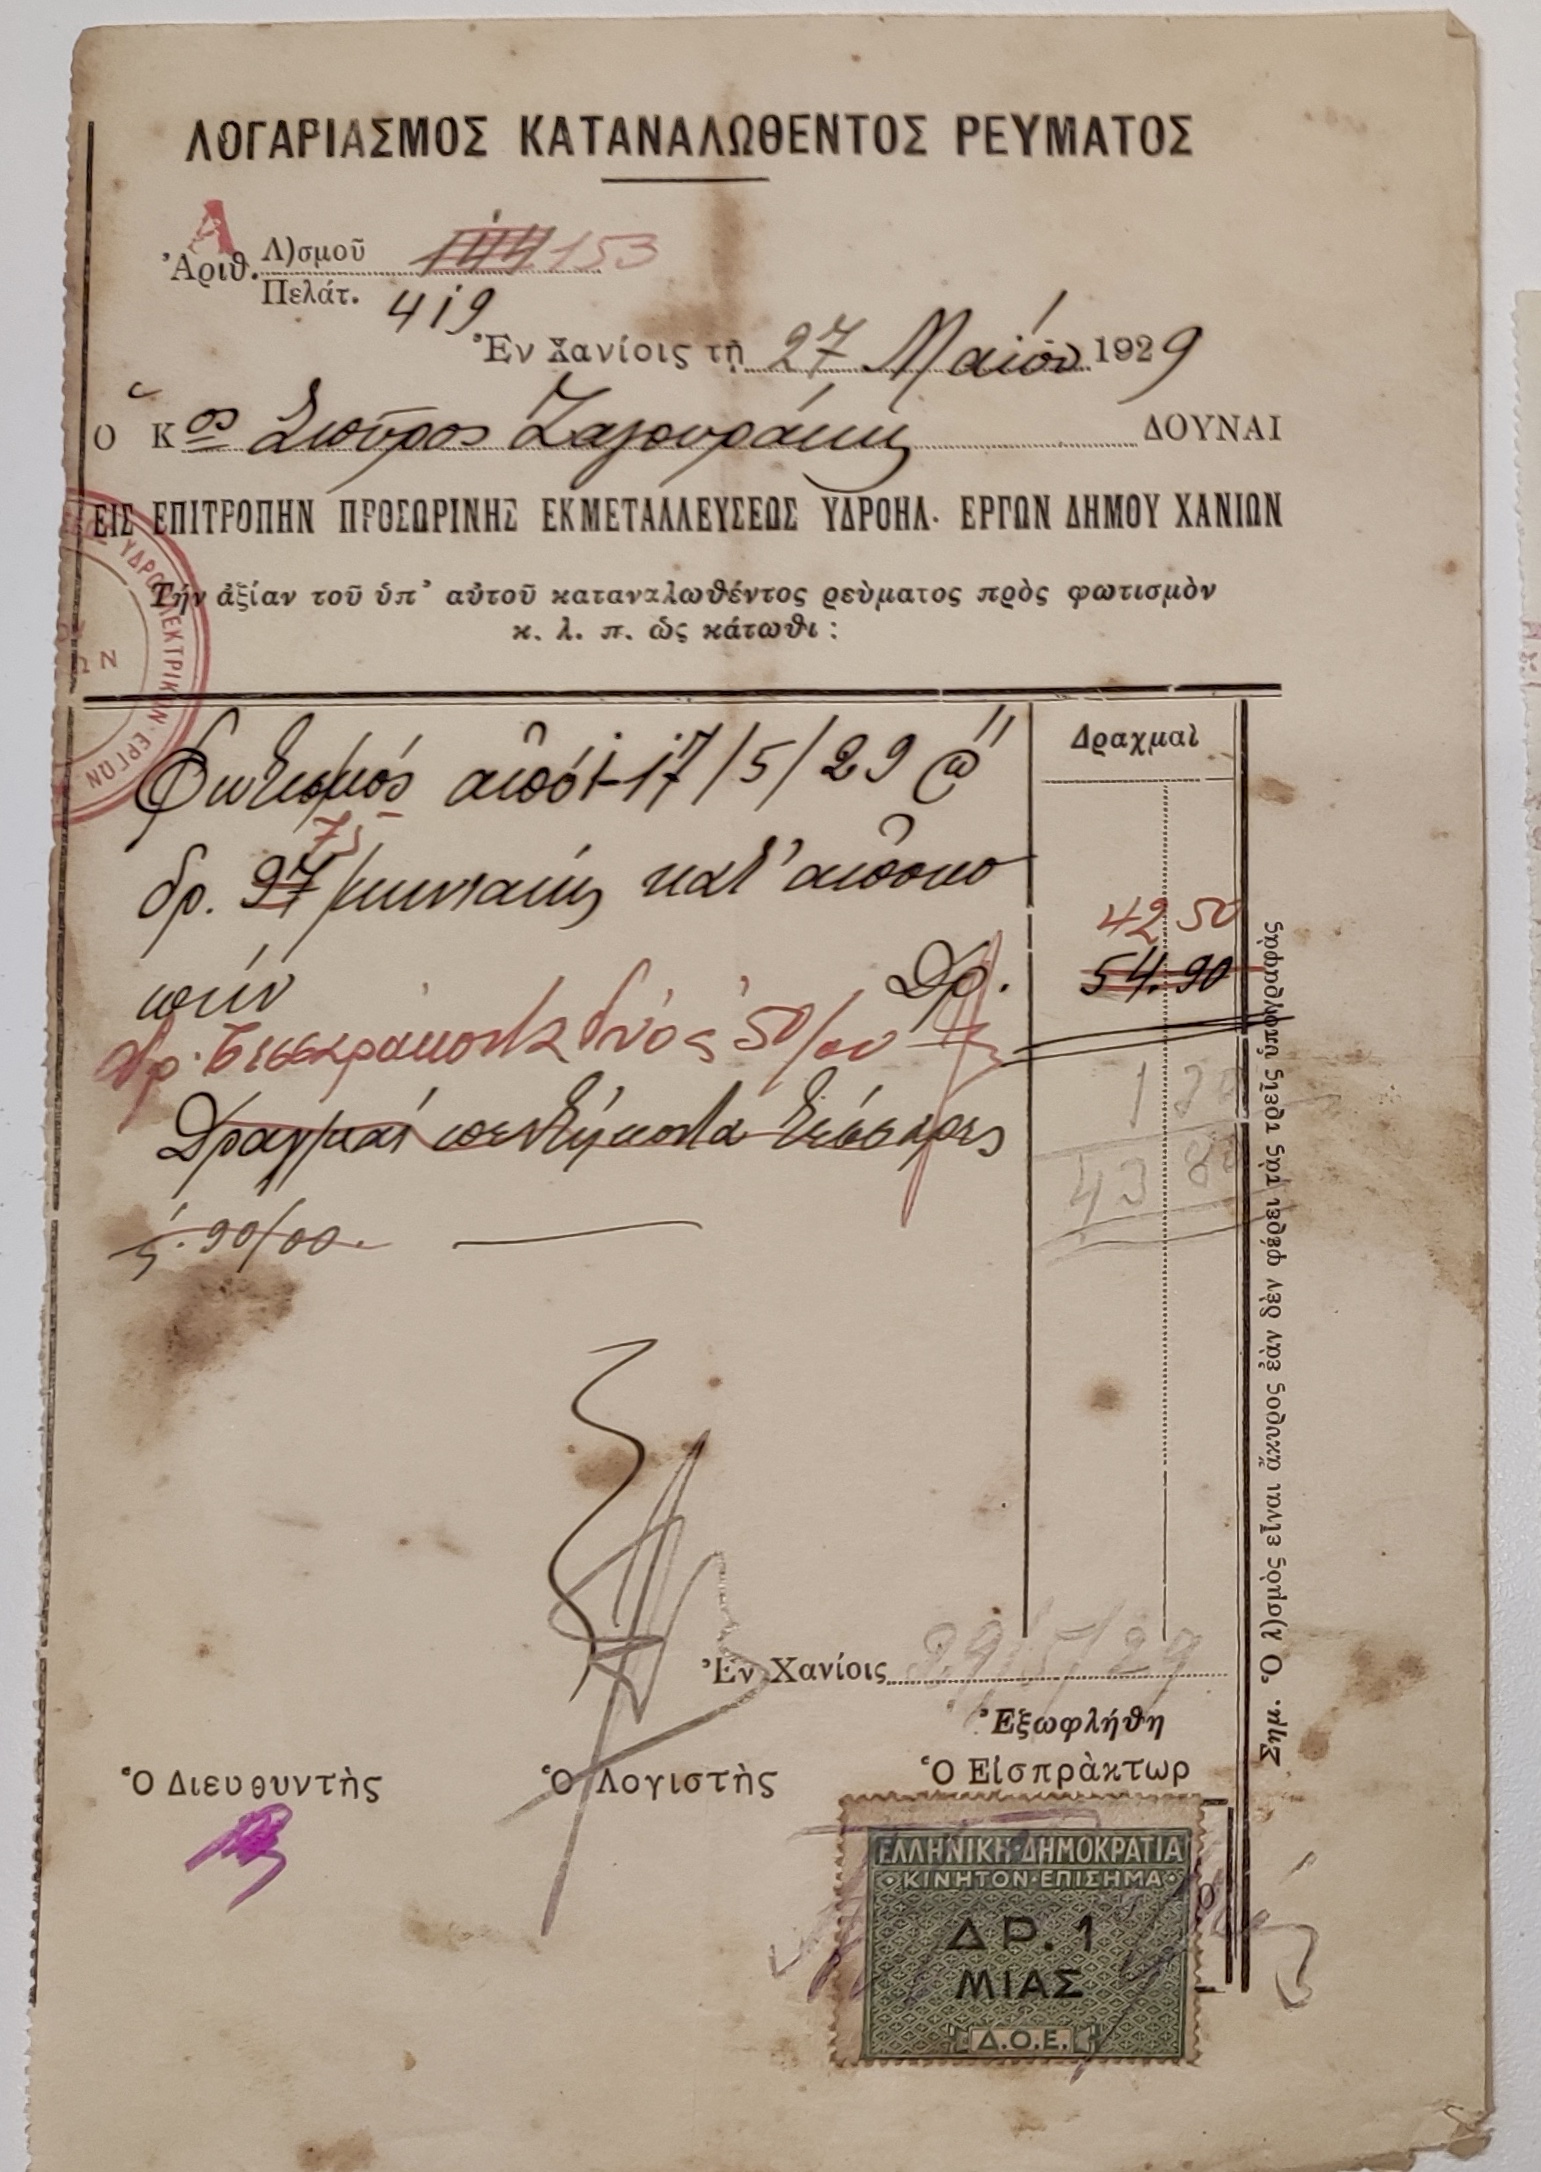 ΛΟΓΑΡΙΑΣΜΟΣ ΚΑΤΑΝΑΛΩΘΕΝΤΟΣ ΡΕΥΜΑΤΟΣ
Α
Ἀριθ. Λ)σμοῦ 144 153
Πελάτ. 419
Ἐν Χανίοις τῇ 27 Μαΐου 1929
Ὁ Κος Σπῦρος Ζαγουράκης ΔΟΥΝΑΙ
ΕΙΣ ΕΠΙΤΡΟΠΗΝ ΠΡΟΣΩΡΙΝΗΣ ΕΚΜΕΤΑΛΛΕΥΣΕΩΣ ΥΔΡΟΗΛ. ΕΡΓΩΝ ΔΗΜΟΥ ΧΑΝΙΩΝ
ΥΔΡΟΗΛΕΚΤΡΙΚΩΝ ΕΡΓΩΝ
Τήν ἀξίαν τοῦ ὑπ' αὐτοῦ καταναλωθέντος ρεὺματος πρὸς φωτισμὸν
κ. λ. π. ὡς κάτωθι :
Δραχμαὶ
Φωτισμός ἀπό 1-17/5/29
75
δρ. 97 μηνιαίως κατ' ἀποκο
42 50
πήν Δρ. 54.90
Δρ. τεσσεράκοντα δύο ς 50/00
1 30
Δραχμαί πεντήκοντα τέσσαρες
43 80
ς. 90/00.
Σημ. Ὁ λ)σμὸς εἶναι ἄκυρος ἐὰν δὲν φέρει τὰς τρεῖς ὑπογραφὰς
Ἐν Χανίοις 29/5/29
Ἐξωφλήθη
Ὁ Διευθυντὴς Ὁ Λογιστὴς Ὁ Εἰσπρὰκτωρ
ΕΛΛΗΝΙΚΗ·ΔΗΜΟΚΡΑΤΙΑ
ΚΙΝΗΤΟΝ·ΕΠΙΣΗΜΑ
ΔΡ. 1
ΜΙΑΣ
Δ.Ο.Ε.